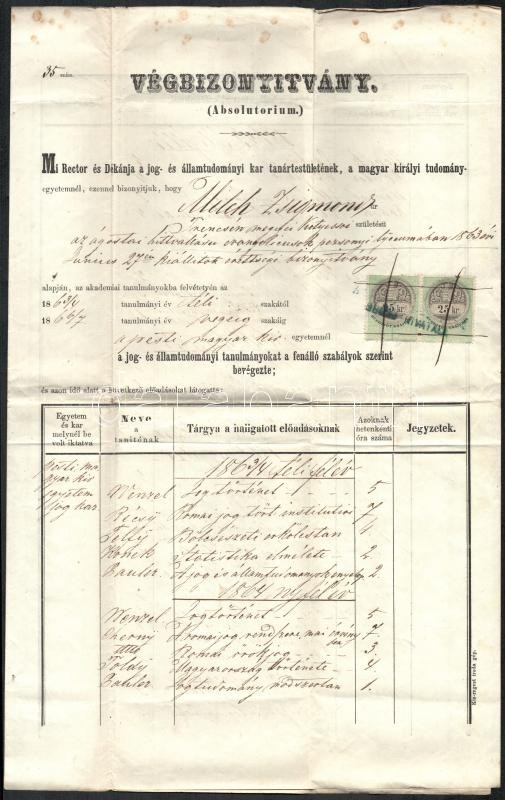 35 szám.
VÉGBIZONYITVÁNY.
(Absolutorium.)
Mi Rector és Dékánja a jog- és államtudományi kar tanártestületének, a magyar királyi tudomány-
egyetemnél, ezennel bizonyitjuk, hogy
Milch Zsigmond úr
Trencsén megyei születésü
az ágostai hitvallásu evangelicusok pozsonyi lyceumában 1863 évi
Junius 27én kiállitott érettségi bizonyitvány
alapján, az akadémiai tanulmányokba felvétetvén az
1863/4 tanulmányi év téli szakától
1866/7 tanulmányi év végéig szakáig
a pesti magyar kir. egyetemnél
a jog- és államtudományi tanulmányokat a fenálló szabályok szerint
bevégezte;
és azon idő alatt a következő előadásokat látogatta:
25 kr. 25 kr.
HIVATAL
Egyetem és kar melynél be volt iktatva
Neve a tanitónak
Tárgya a hallgatott előadásoknak
Azoknak hetenkénti óra száma
Jegyzetek.
pesti ma-
gyar kir
egyetem
jog kar
1863/4 téli félév
Wenzel Jogtörténet 5
Récsy Római jog tört. institutiói 7
Bölcsészeti erkölcstan 4
Konek Statistika elmélete 2
Pauler A jog és államtudományok 2
1864 nyfélév
Wenzel Jogtörténet 5
A római jog rendszere, mai 7
Római örökjog 3
Toldy Magyarország története 4
Pauler Jogtudomány, módszertan 1